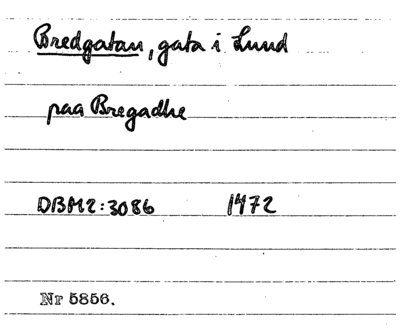 Bredgatan, gata i Lund
paa Bregadhe
DBM2:3086 1472
Nr 5856.